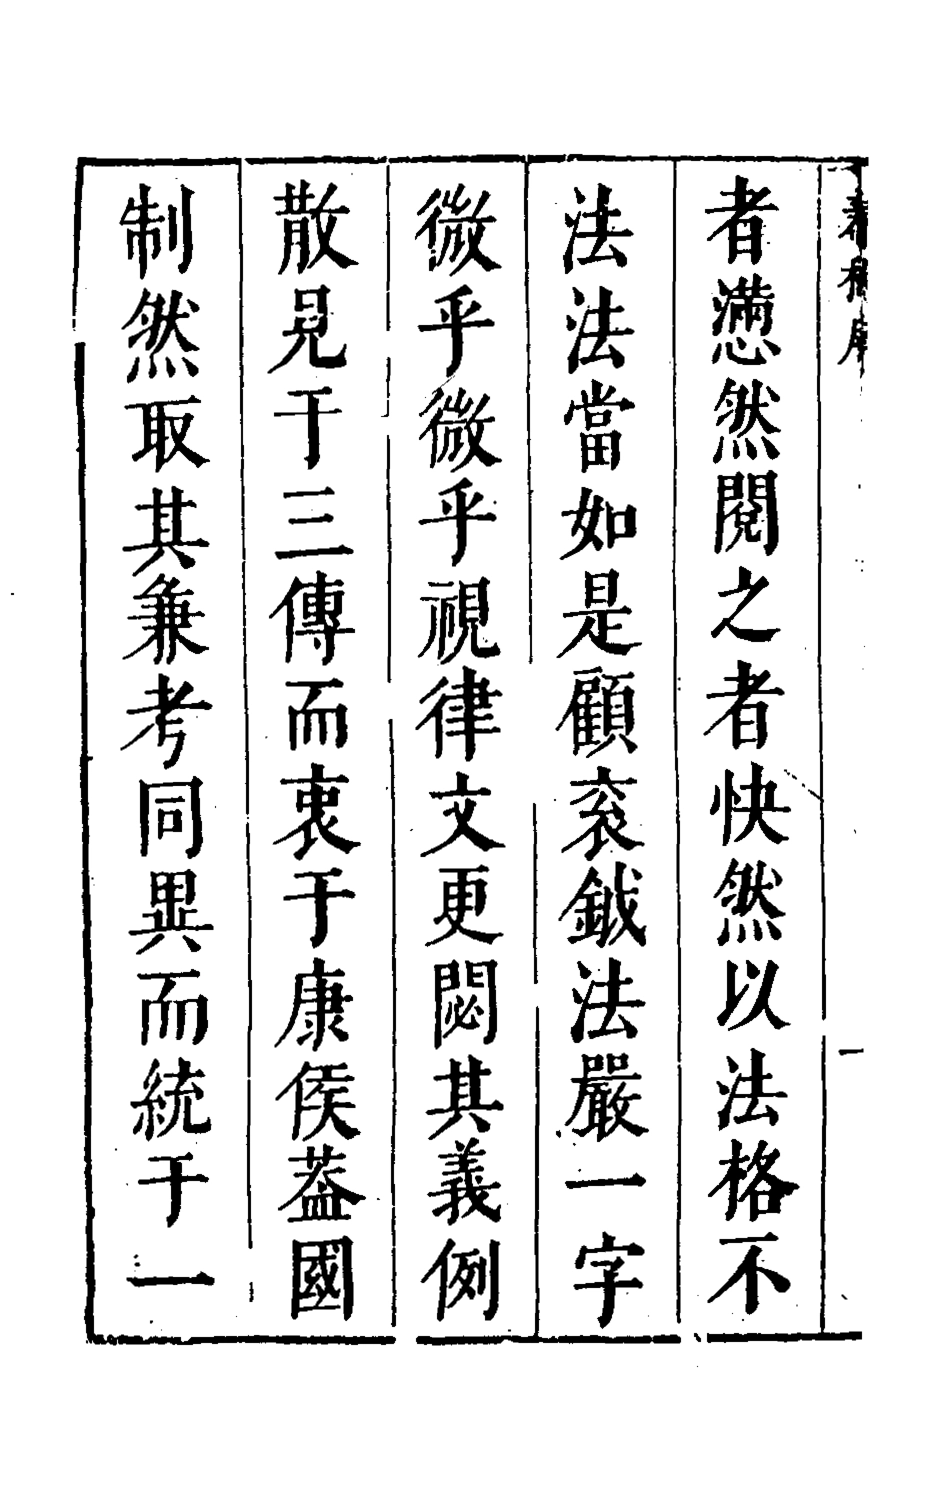 一
者懣然閱之者快然以法格不
法法當如是顧袞鉞法嚴一字
微乎微乎視律文更閟其義例
散見于三傳而衷于康侯葢國
制然取其兼考同異而統于一